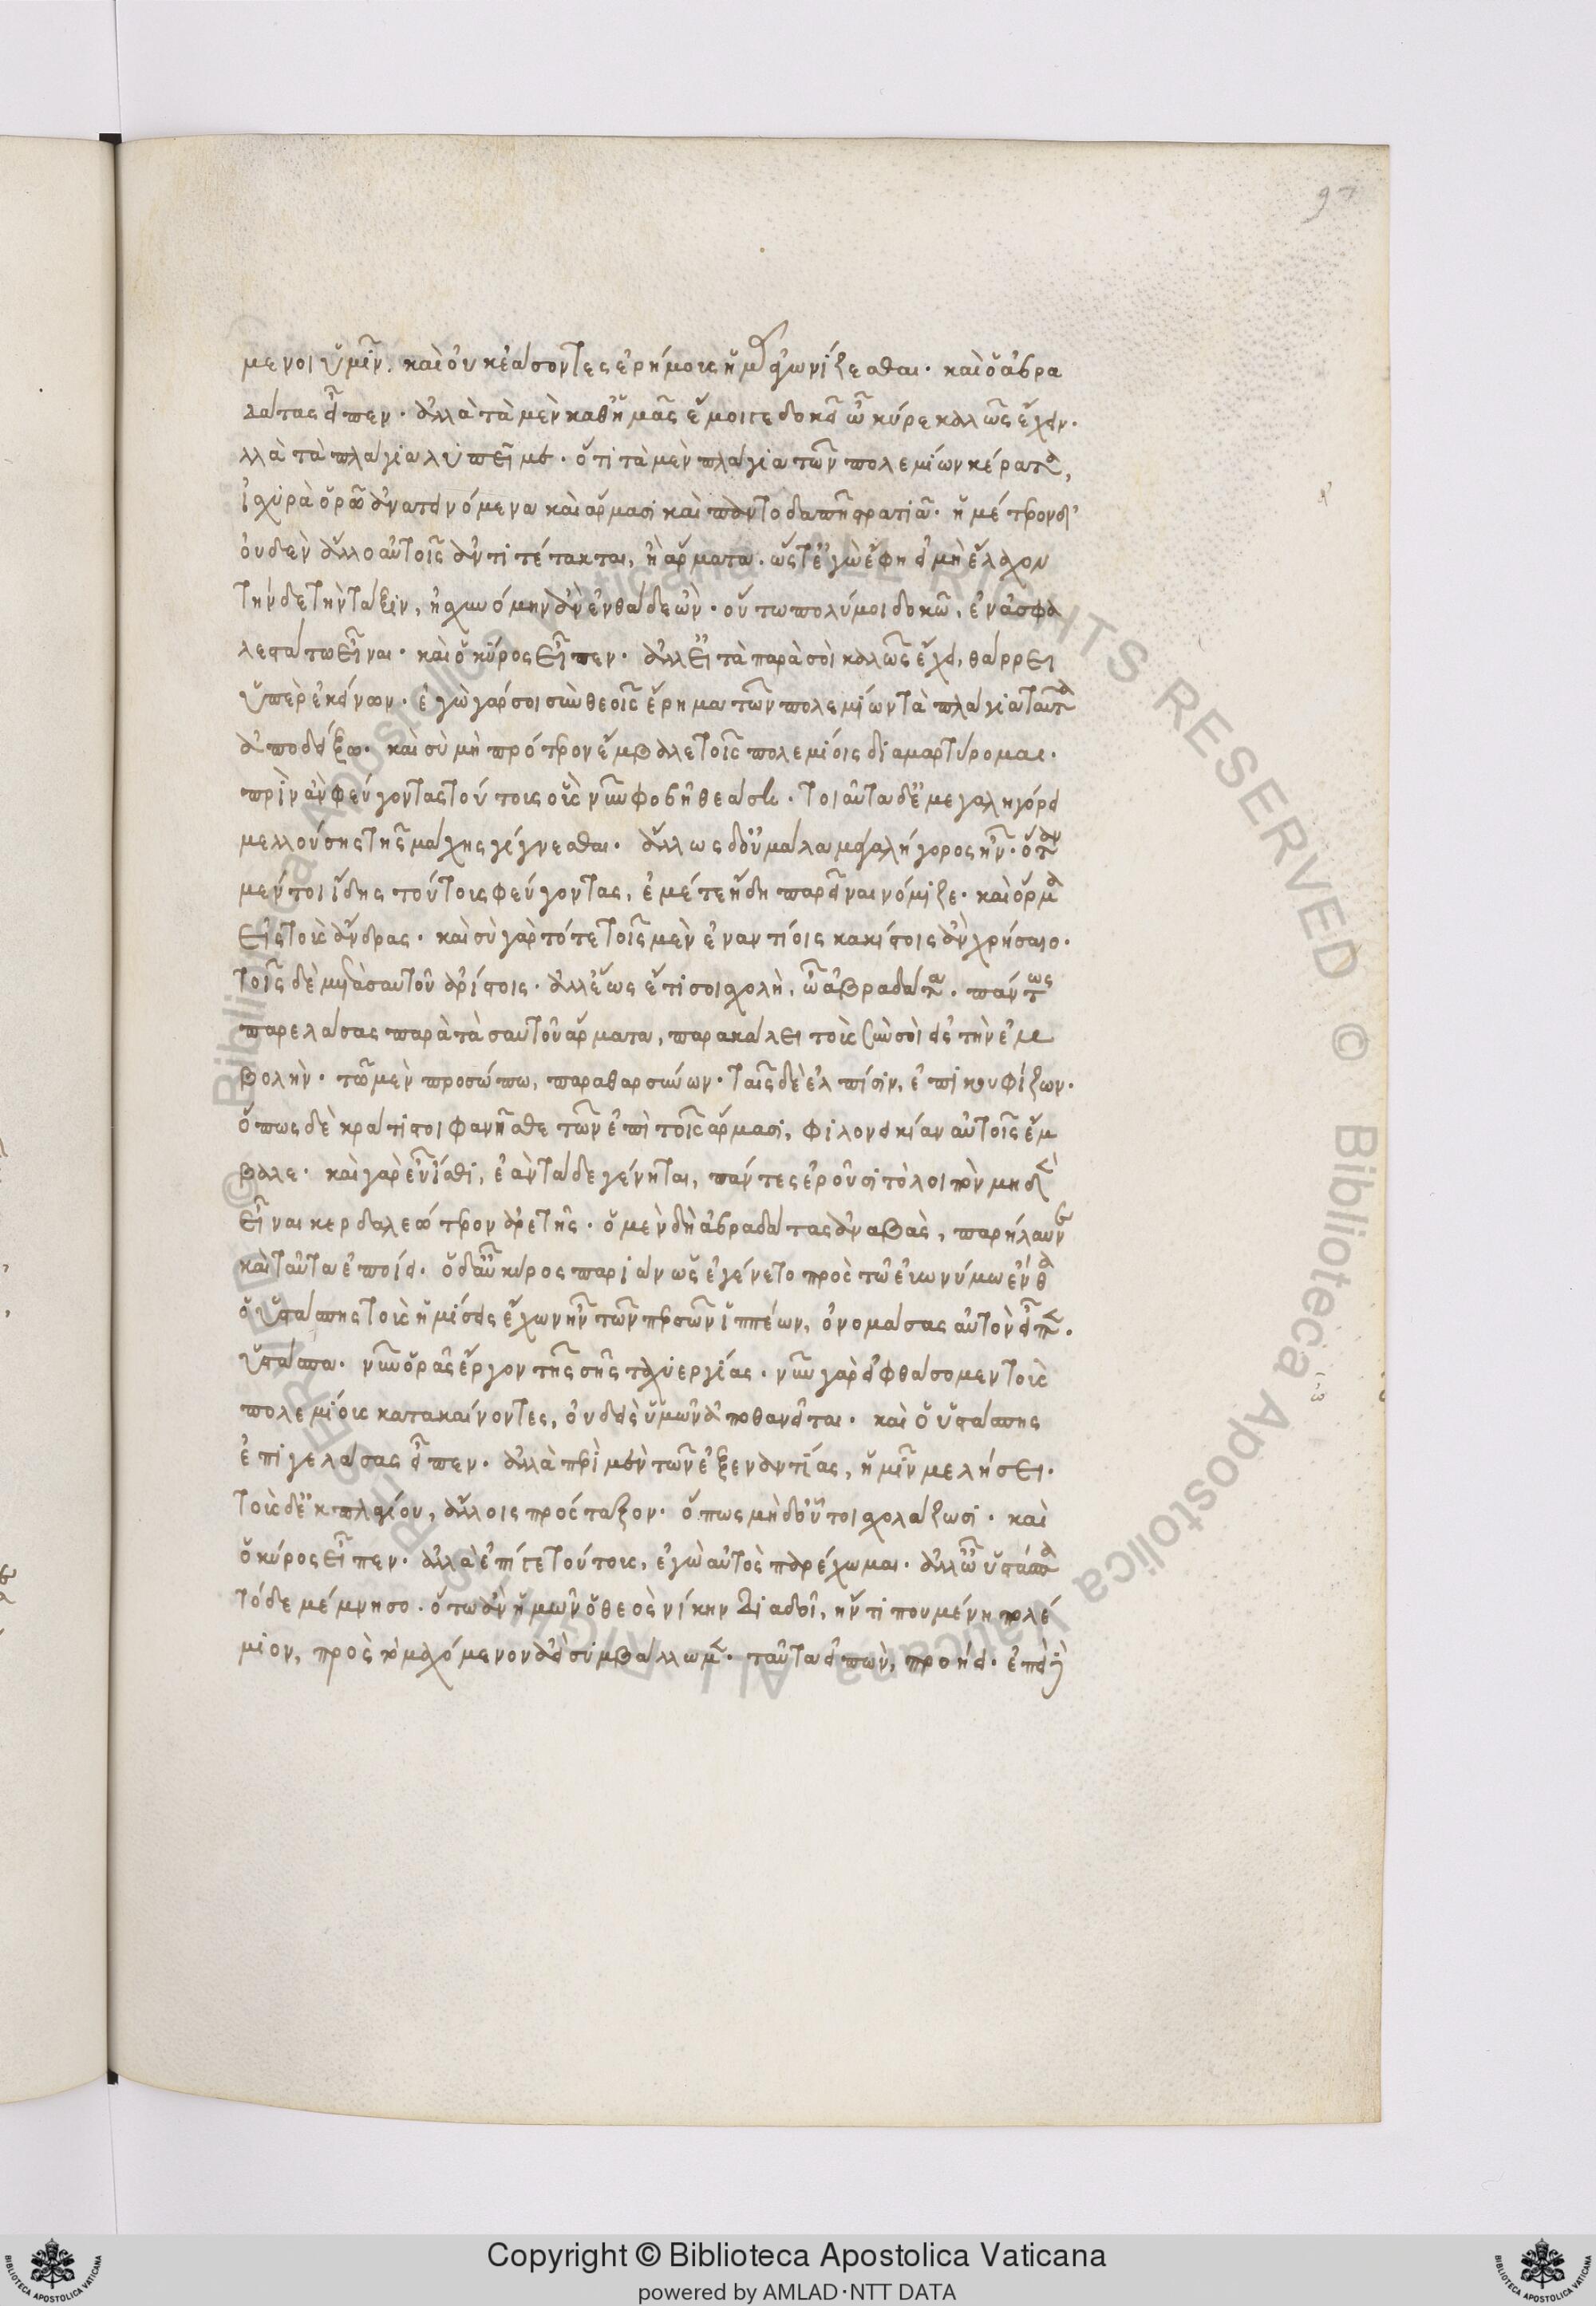 97
μενοι ὑμῖν. καὶ οὐκ ἐάσοντες ἐρήμους ἡμᾶς ἀγωνίζεσθαι. καὶ ὁ ἀβρα
δάτας εἶπεν. ἀλλὰ τὰ μὲν καθ' ἡμᾶς ἔμοιγε δοκεῖ ὦ κύρε καλῶς ἔχειν.
λλὰ τὰ πλάγια λυπεῖ με. ὅτι τὰ μὲν πλάγια τῶν πολεμίων κέρατα,
ἰσχυρὰ ὁρῶ ἀνατεινόμενα καὶ ἅρμασι καὶ παντοδαπῇ στρατιᾷ. ἡμέτερον δ'
οὐδὲν ἄλλο αὐτοῖς ἀντιτέτακται, ἢ ἅρματα. ὥστ' ἔγωγ' ἔφη εἰ μὴ ἔλαχον
τήνδε τὴν τάξιν, ἠσχυνόμην ἂν ἐνθάδε ὤν. οὕτω πολύ μοι δοκῶ, ἐν ἀσφα
λεστάτω εἶναι. καὶ ὁ κῦρος εἶπεν. ἀλλ' εἰ τὰ παρὰ σοὶ καλῶς ἔχει, θάρρει
ὑπὲρ ἐκείνων. ἐγὼ γάρ σοι σὺν θεοῖς ἔρημα τῶν πολεμίων τὰ πλάγια ταῦτα
ἀποδείξω. καὶ σὺ μὴ πρότερον ἔμβαλλε τοῖς πολεμίοις διαμαρτύρομαι.
πρὶν ἂν φεύγοντας τούτους οὓς νῦν φοβῇ θεάσῃ. τοιαῦτα δ' ἐμεγαληγόρει
μελλούσης τῆς μάχης γίγνεσθαι. ἄλλως δ' οὐ μάλα μεγαλήγορος ἦν. ὅταν
μέντοι ἴδῃς τούτους φεύγοντας, ἐμέ τε ἤδη παρεῖναι νόμιζε. καὶ ὅρμα
εἰς τοὺς ἄνδρας. καὶ σὺ γὰρ τότε τοῖς μὲν ἐναντίοις κακίστοις ἂν χρήσαιο.
τοῖς δὲ μετὰ σαυτοῦ ἀρίστοις. ἀλλ' ἕως ἔτι σοι σχολὴ, ὦ ἀβραδάτα. πάντως
παρελάσας παρὰ τὰ σαυτοῦ ἅρματα, παρακάλει τοὺς σὺν σοὶ εἰς τὴν ἐμ
βολὴν. τῶ μὲν προσώπω, παραθαρσύνων. ταῖς δὲ ἐλπίσιν, ἐπικουφίζων.
ὅπως δὲ κράτιστοι φανῆσθε τῶν ἐπὶ τοῖς ἅρμασι, φιλονεικίαν αὐτοῖς ἔμ
βαλε. καὶ γὰρ εὖ ἴσθι, ἐὰν τάδε γένηται, πάντες ἐροῦσι τὸ λοιπὸν μηδὲν
εἶναι κερδαλεώτερον ἀρετῆς. ὁ μὲν δὴ ἀβραδάτας ἀναβὰς, παρήλαυνε
καὶ ταῦτα ἐποίει. ὁ δ' αὖ κῦρος παριὼν ὡς ἐγένετο πρὸς τῶ εὐωνύμω ἔνθα
ὁ ὑστάσπης τοὺς ἡμίσεις ἔχων ἦν τῶν περσῶν ἱππέων, ὀνομάσας αὐτὸν εἶπεν.
ὑστάσπα. νῦν ὁρᾷς ἔργον τῆς σῆς ταχυεργίας. νῦν γὰρ εἰ φθάσομεν τοὺς
πολεμίους κατακαίνοντες, οὐδεὶς ὑμῶν ἀποθανεῖται. καὶ ὁ ὑστάσπης
ἐπιγελάσας εἶπεν. ἀλλὰ περὶ μὲν τῶν ἐξ ἐναντίας, ἡμῖν μελήσει.
τοὺς δ' ἐκ πλαγίου, ἄλλοις πρόσταξον. ὅπως μηδ' οὗτοι σχολάζωσι. καὶ
ὁ κῦρος εἶπεν. ἀλλὰ ἐπί γε τούτους, ἐγὼ αὐτὸς παρέχομαι. ἀλλ' ὦ ὑστάσπα
τόδε μέμνησο. ὅτω ἂν ἡμῶν ὁ θεὸς νίκην διαδοῖ, ἤν τί που μένῃ πολέ
μιον, πρὸς τὸ μαχόμενον ἀεὶ συμβάλλωμεν. ταῦτα εἰπὼν, προῄει. ἐπεὶ
Copyright © Biblioteca Apostolica Vaticana
powered by AMLAD·NTT DATA